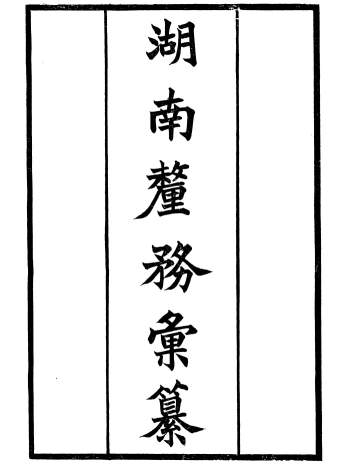 湖南釐務彙纂